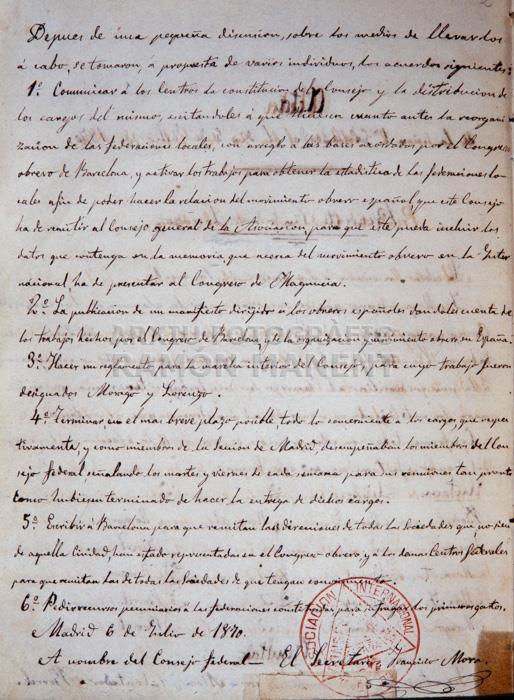 Depues de una pequeña discusion, sobre los medios de llevarlos
á cabo, se tomaron, á propuesta de varios individuos, los acuerdos siguientes:
1º Comunicar á los Centros la constitucion del Consejo y la distribucion de
los cargos del mismo, escitándoles á que hiciesen cuanto antes la reorgani-
zacion de las federaciones locales, con arreglo á las bases acordadas por el Congreso
obrero de Barcelona, y activar los trabajos para obtener la estadística de las federaciones lo-
cales á fin de poder hacer la relacion del movimiento obrero español que este Consejo
ha de remitir al Consejo general de la Asociacion, para que este pueda incluir los
datos que contenga en la memoria, que acerca del movimiento obrero en la Inter
nacional, ha de presentar al Congreso de Maguncia.
2º La publicacion de un manifiesto dirijido á los obreros españoles dandoles cuenta de
los trabajos hechos por el Congreso de Barcelona, y de la organizacion y movimiento obrero en España.
3º Hacer un reglamento para la marcha interior del Consejo, para cuyo trabajo fueron
designados Morago y Lorenzo.
4º Terminar, en el mas breve plazo posible, todo lo concerniente á los cargos, que respec
tivamente, y como miembros de la Seccion de Madrid, desempeñaban los miembros del Con
sejo federal señalando los martes y viernes de cada semana para las reuniones tan pronto
como hubiesen terminado de hacer la entrega de dichos cargos.
5º Escribir á Barcelona para que remitan las direcciones de todas las Sociedades que, no sien
de aquella Ciudad, han estado representadas en el Congreso obrero, y á los demas Centros federales
para que remitan las de todas las Sociedades de que tengan conocimiento.
6º Pedir recursos pecuniarios á las federaciones constituidas para sufragar los primeros gastos.
Madrid 6 de Julio de 1870.
A nombre del Consejo federal— El Secretario, Francisco Mora.
ARXIU FOTOGRÀFIC
RAMON MANENT
ASOCIACION INTERNACIONAL